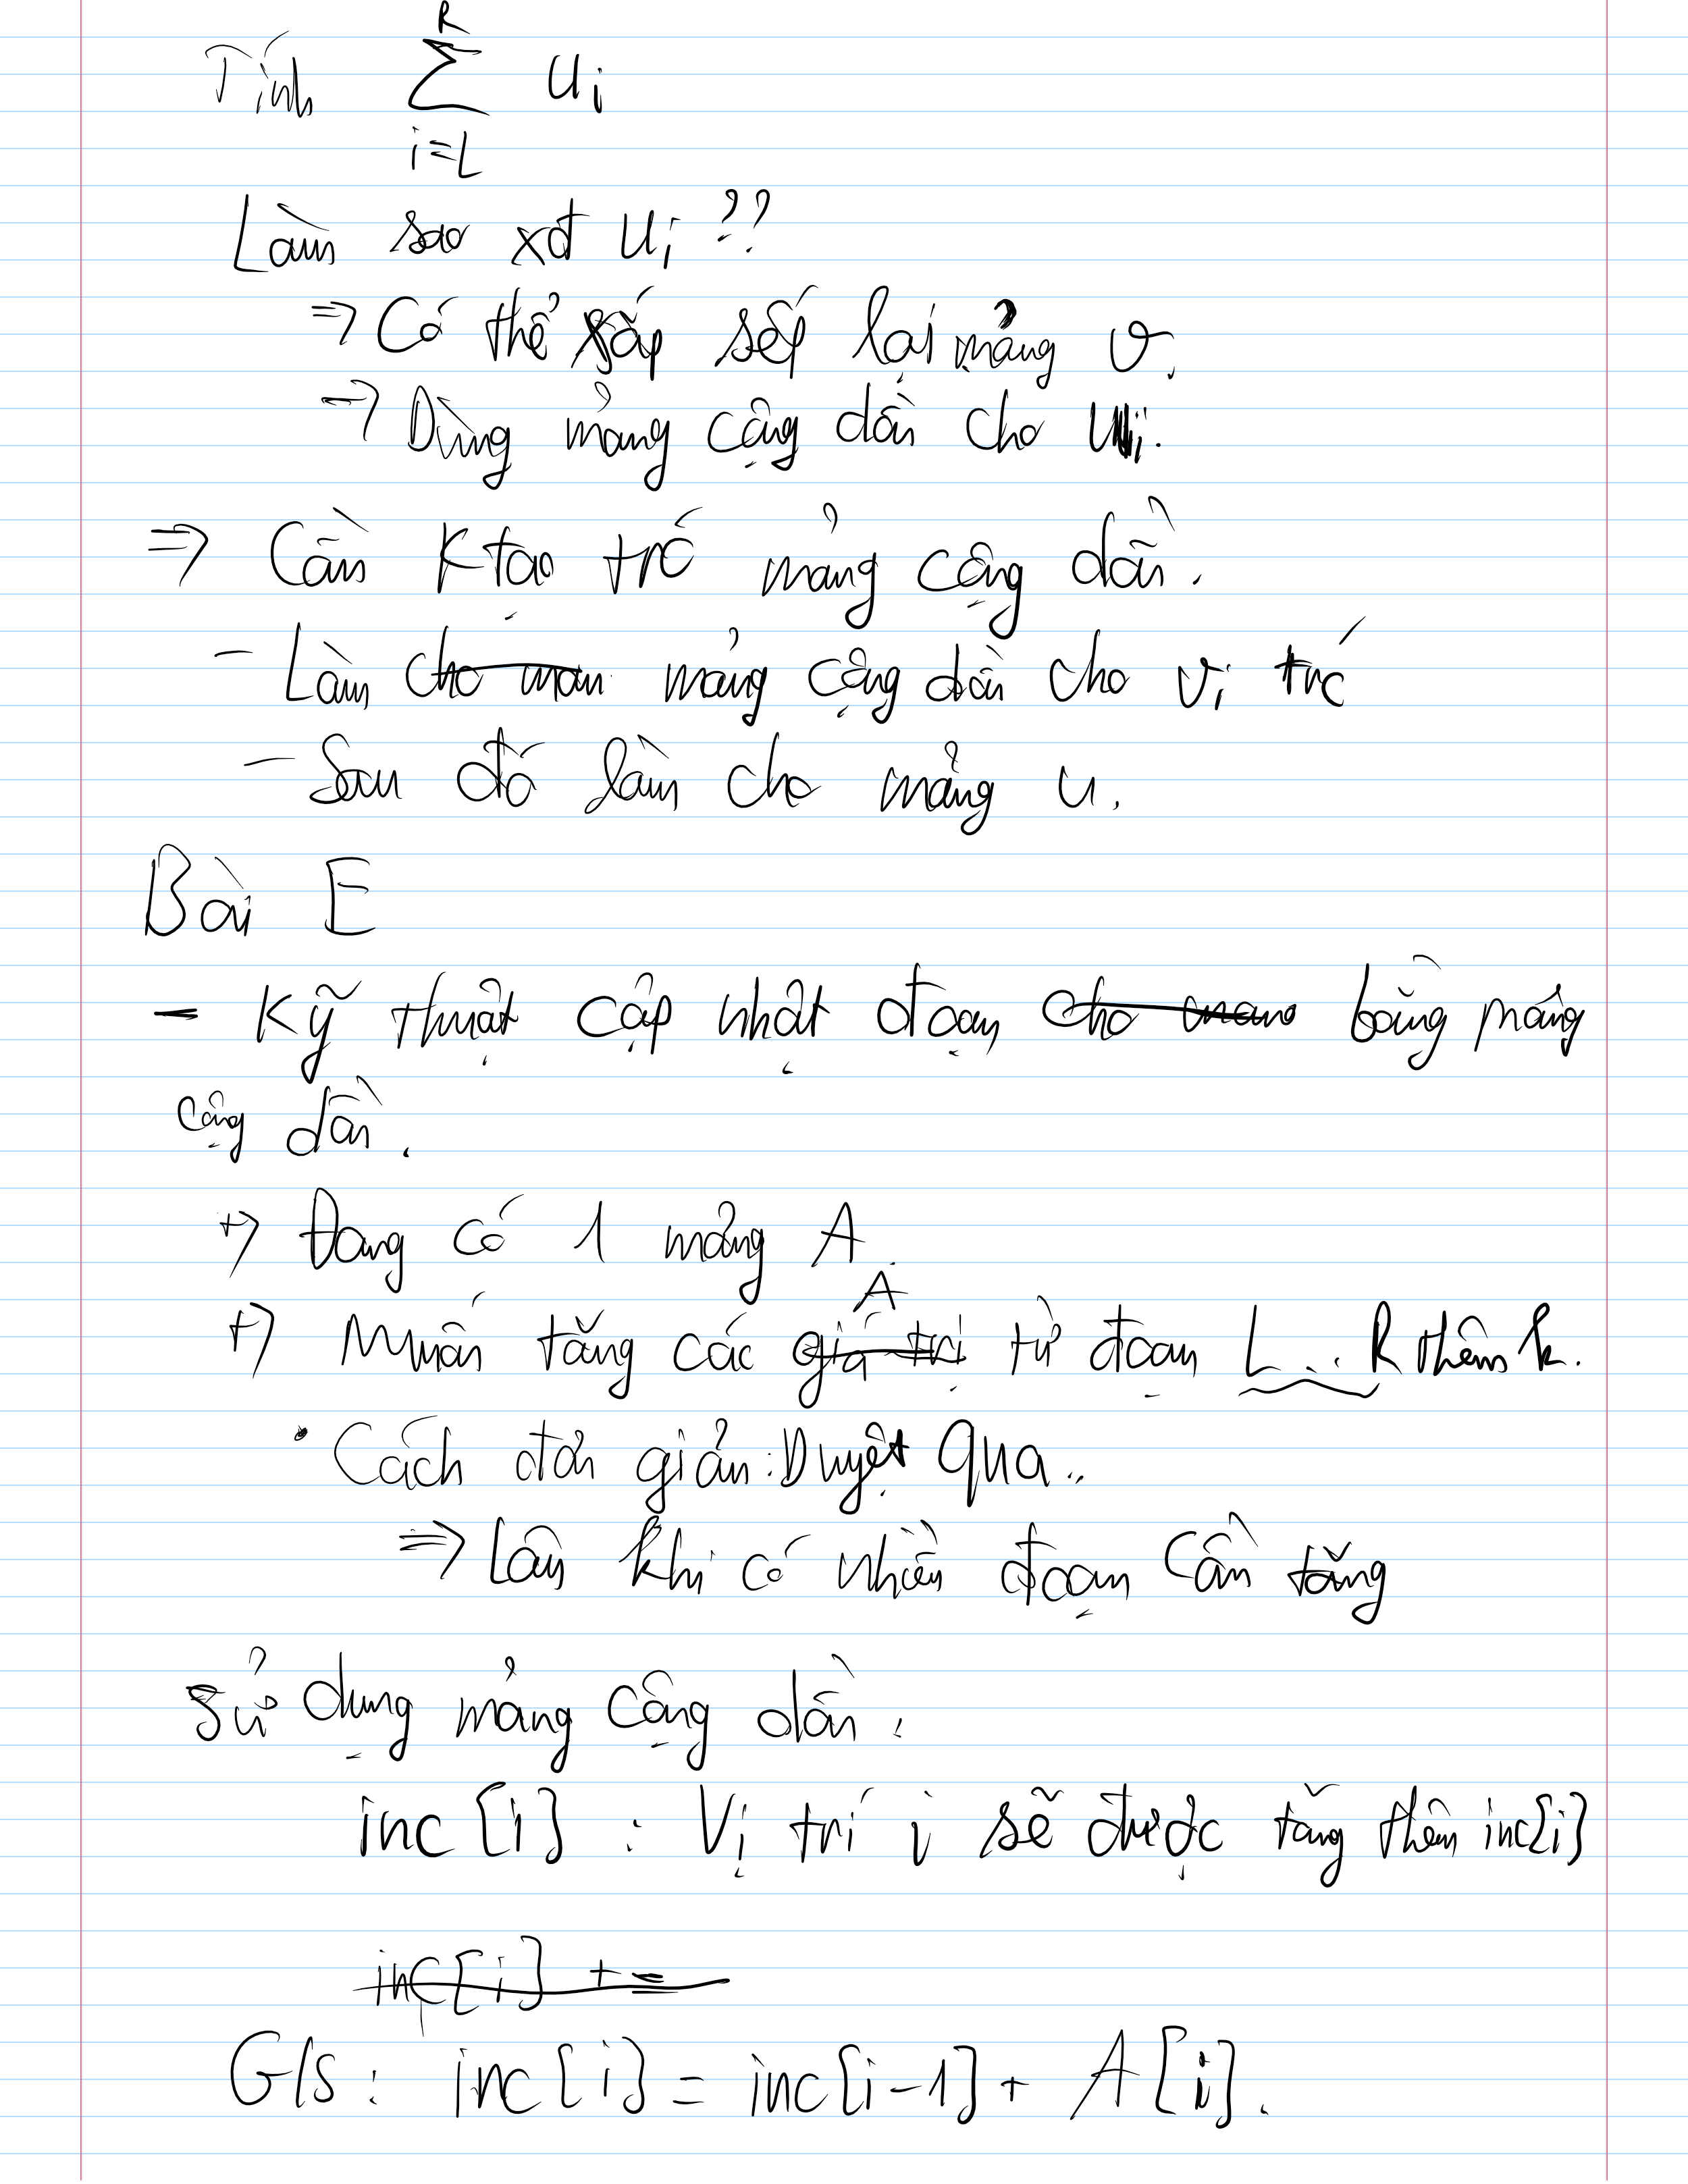 Tính $\sum_{i=L}^{R} u_i$
Làm sao xđ u_i ??
⇒ Có thể sắp sếp lại mảng v.
→ Dùng mảng cộng dồn cho u_i.
⇒ Cần Ktạo trc mảng cộng dồn.
- Làm ~~cho man~~ mảng cộng dồn cho v_i trc
- Sau đó làm cho mảng u.
Bài E
- Kỹ thuật cập nhật đoạn ~~cho mang~~ bằng mảng
cộng dồn.
+> Đang có 1 mảng A.
+> Muốn tăng các ~~giá trị~~ A từ đoạn L .. R thêm k.
• Cách đơn giản: Duyệt qua..
⇒ Lâu khi có nhiều đoạn cần tăng
Sử dụng mảng cộng dồn:
inc[i] : Vị trí i sẽ được tăng thêm inc[i]
~~inc[i] +=~~
G/s: inc[i] = inc[i-1] + A[i].